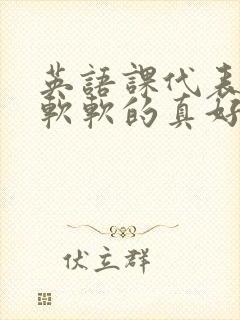 英語課代表
軟軟的真好
伏立群